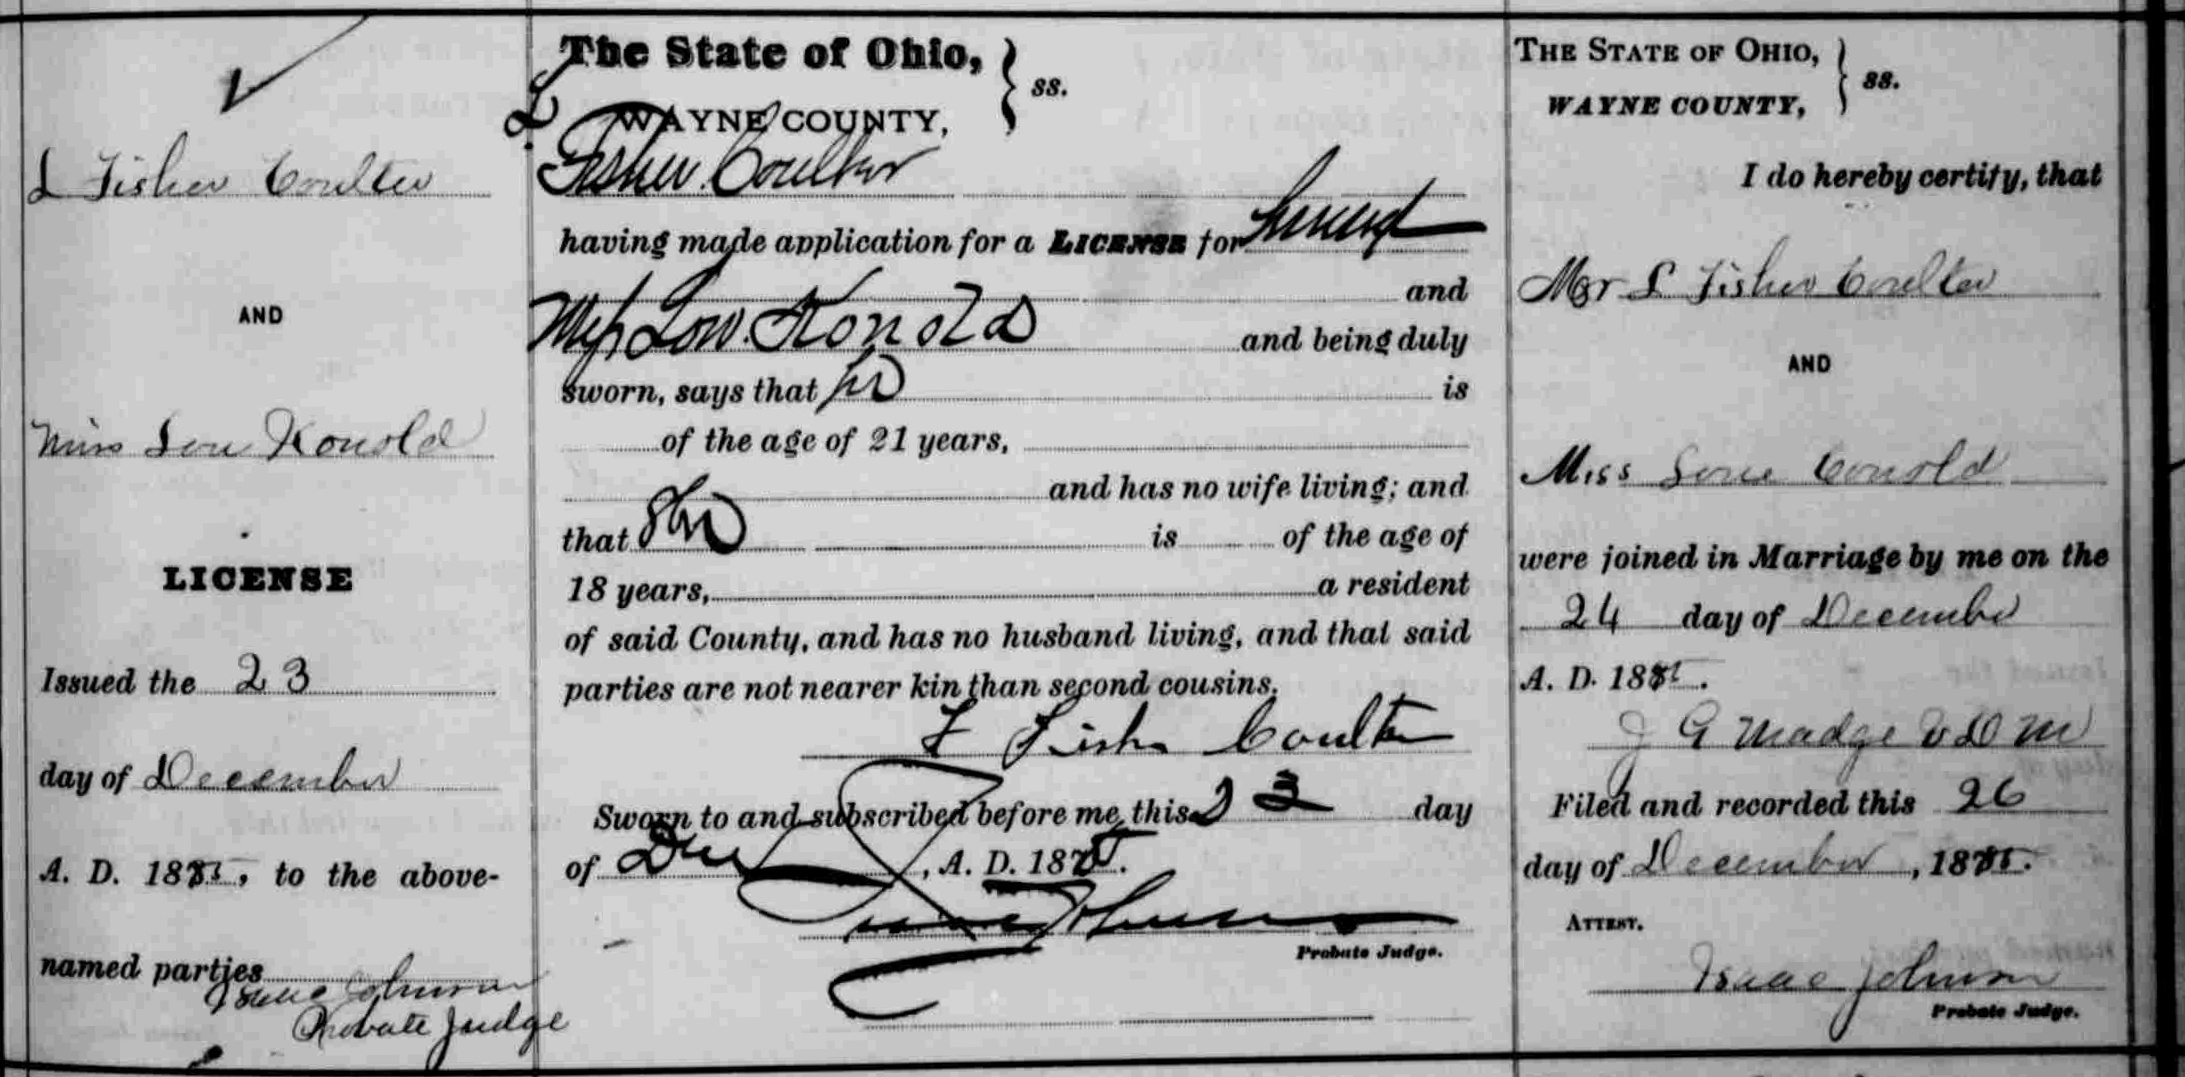 L Fisher Coulter
AND
Miss Lou Konold
LICENSE
Issued the 23
day of December
A. D. 188, to the above-
named parties
Isaac Johnson
Probate Judge
The State of Ohio, } ss.
WAYNE COUNTY,
L. Fisher Coulter
having made application for a LICENSE for himself
and
Miss Lou Konold and being duly
sworn, says that he is
of the age of 21 years,
and has no wife living; and
that she is of the age of
18 years, a resident
of said County, and has no husband living, and that said
parties are not nearer kin than second cousins.
L Fisher Coulter
Sworn to and subscribed before me, this 23 day
of Dec, A. D. 18
Isaac Johnson
Probate Judge.
THE STATE OF OHIO, } ss.
WAYNE COUNTY,
I do hereby certify, that
Mr L Fisher Coulter
AND
Miss Conold
were joined in Marriage by me on the
24 day of December
A. D. 188.
J G Madge V D M
Filed and recorded this 26
day of December, 18.
ATTEST.
Isaac Johnson
Probate Judge.